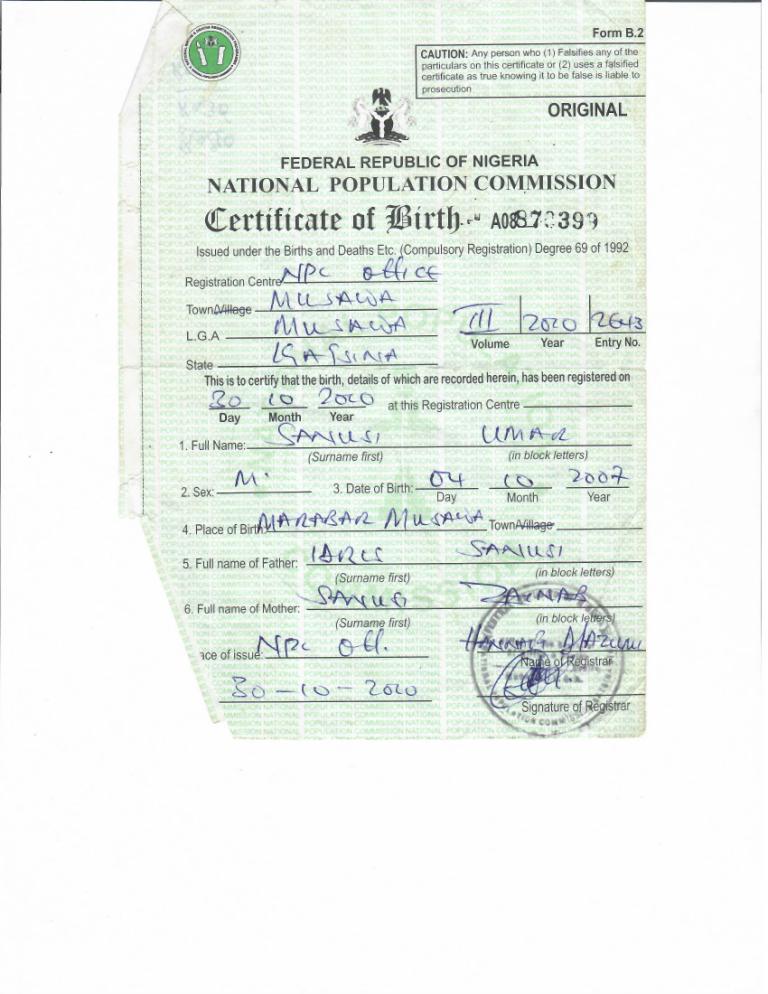 Form B.2
CAUTION: Any person who (1) Falsifies any of the
particulars on this certificate or (2) uses a falsified
certificate as true knowing it to be false is liable to
prosecution
ORIGINAL
FEDERAL REPUBLIC OF NIGERIA
NATIONAL POPULATION COMMISSION
Certificate of Birth
Issued under the Births and Deaths Etc. (Compulsory Registration) Degree 69 of 1992
Registration Centre NPC OFFICE
Town/Village MUSAWA
L.G.A MUSAWA
III 2020 2643
Volume Year Entry No.
State KATSINA
This is to certify that the birth, details of which are recorded herein, has been registered on
30 10 2020 at this Registration Centre
Day Month Year
1. Full Name: SANUSI UMAR
(Surname first) (in block letters)
2. Sex: M. 3. Date of Birth: 04 10 2007
Day Month Year
4. Place of Birth MARABAR MUSAWA Town/Village
5. Full name of Father: IDRIS SANUSI
(Surname first) (in block letters)
6. Full name of Mother: SANUSI ZAYNAB
(Surname first) (in block letters)
ace of issue: NPC Off.
Name of Registrar
30-10-2020
Signature of Registrar